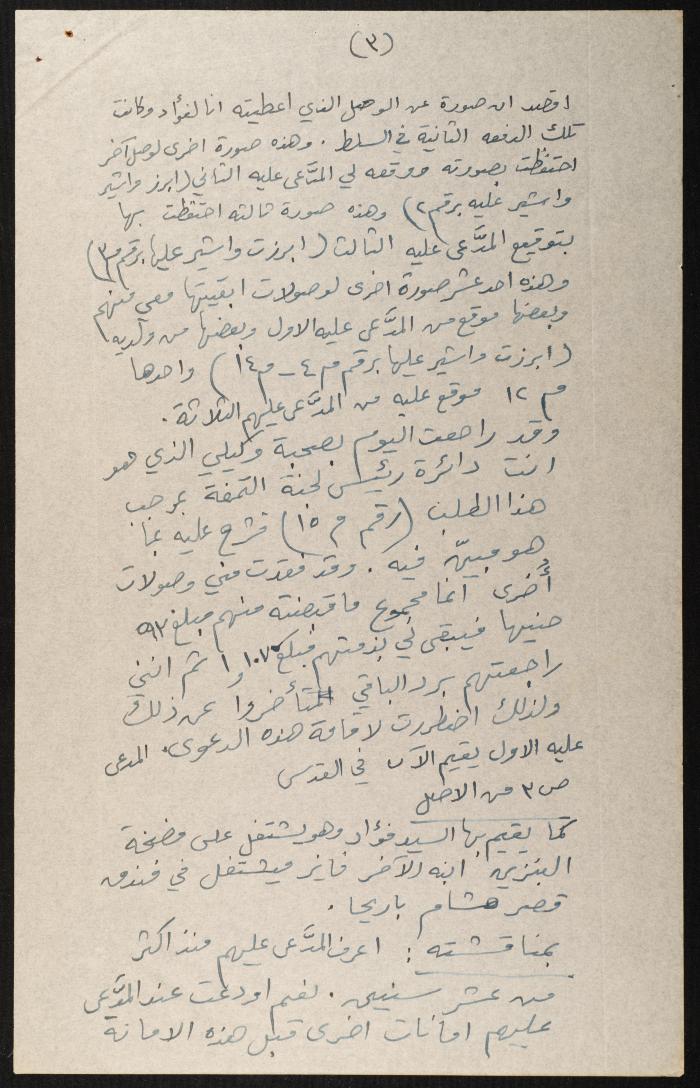 (٣)
اقصد ان صورة عن الوصل الذي اعطيته انا لفؤاد وكانت
تلك الدفعه الثانية في السلط . وهذه صورة اخرى لوصل آخر
احتفظت بصورته ووقعه لي المدَّعى عليه الثاني (ابرز واشير
واشير عليه برقم م٢) وهذه صورة ثالثه احتفظت بها
بتوقيع المدَّعى عليه الثالث (ابرزت واشير عليها برقم م٣)
وهذه احد عشر صورة اخرى لوصولات ابقيتها معي منهم
وبعضها موقع من المدَّعى عليه الاول وبعضها من ولديه
(ابرزت واشير عليها برقم م٤ – م١٤) واحدها
م ١٢ موقع عليه من المدعى عليهم الثلاثة .
وقد راجعت اليوم بصحبة وكيلي الذي هو
انت دائرة رئيس لجنة التمغة بموجب
هذا الطلب (رقم م ١٥) فشرح عليه بما
هو مبيّن فيه . وقد فقدت مني وصولات
أُخرى انما مجموع ما قبضته منهم مبلغ ٥٩٣
جنيها فيبقى لي بذمتهم مبلغ ١٠٧ و ثم انني
راجعتهم برد الباقي فتأخروا عن ذلك
ولذلك اضطررت لاقامة هذه الدعوى . المدعى
عليه الاول يقيم الآن في القدس
ص ٣ من الاصل
كما يقيم بها السيد فؤاد وهو يشتغل على مضخة
البنزين ابنه الآخر فايز فيشتغل في فندق
قصر هشام باريحا .
بمناقشته : اعرف المدَّعى عليهم منذ اكثر
من عشر سنين . نعم اودعت عند المدَّعى
عليهم امانات اخرى قبل هذه الامانة